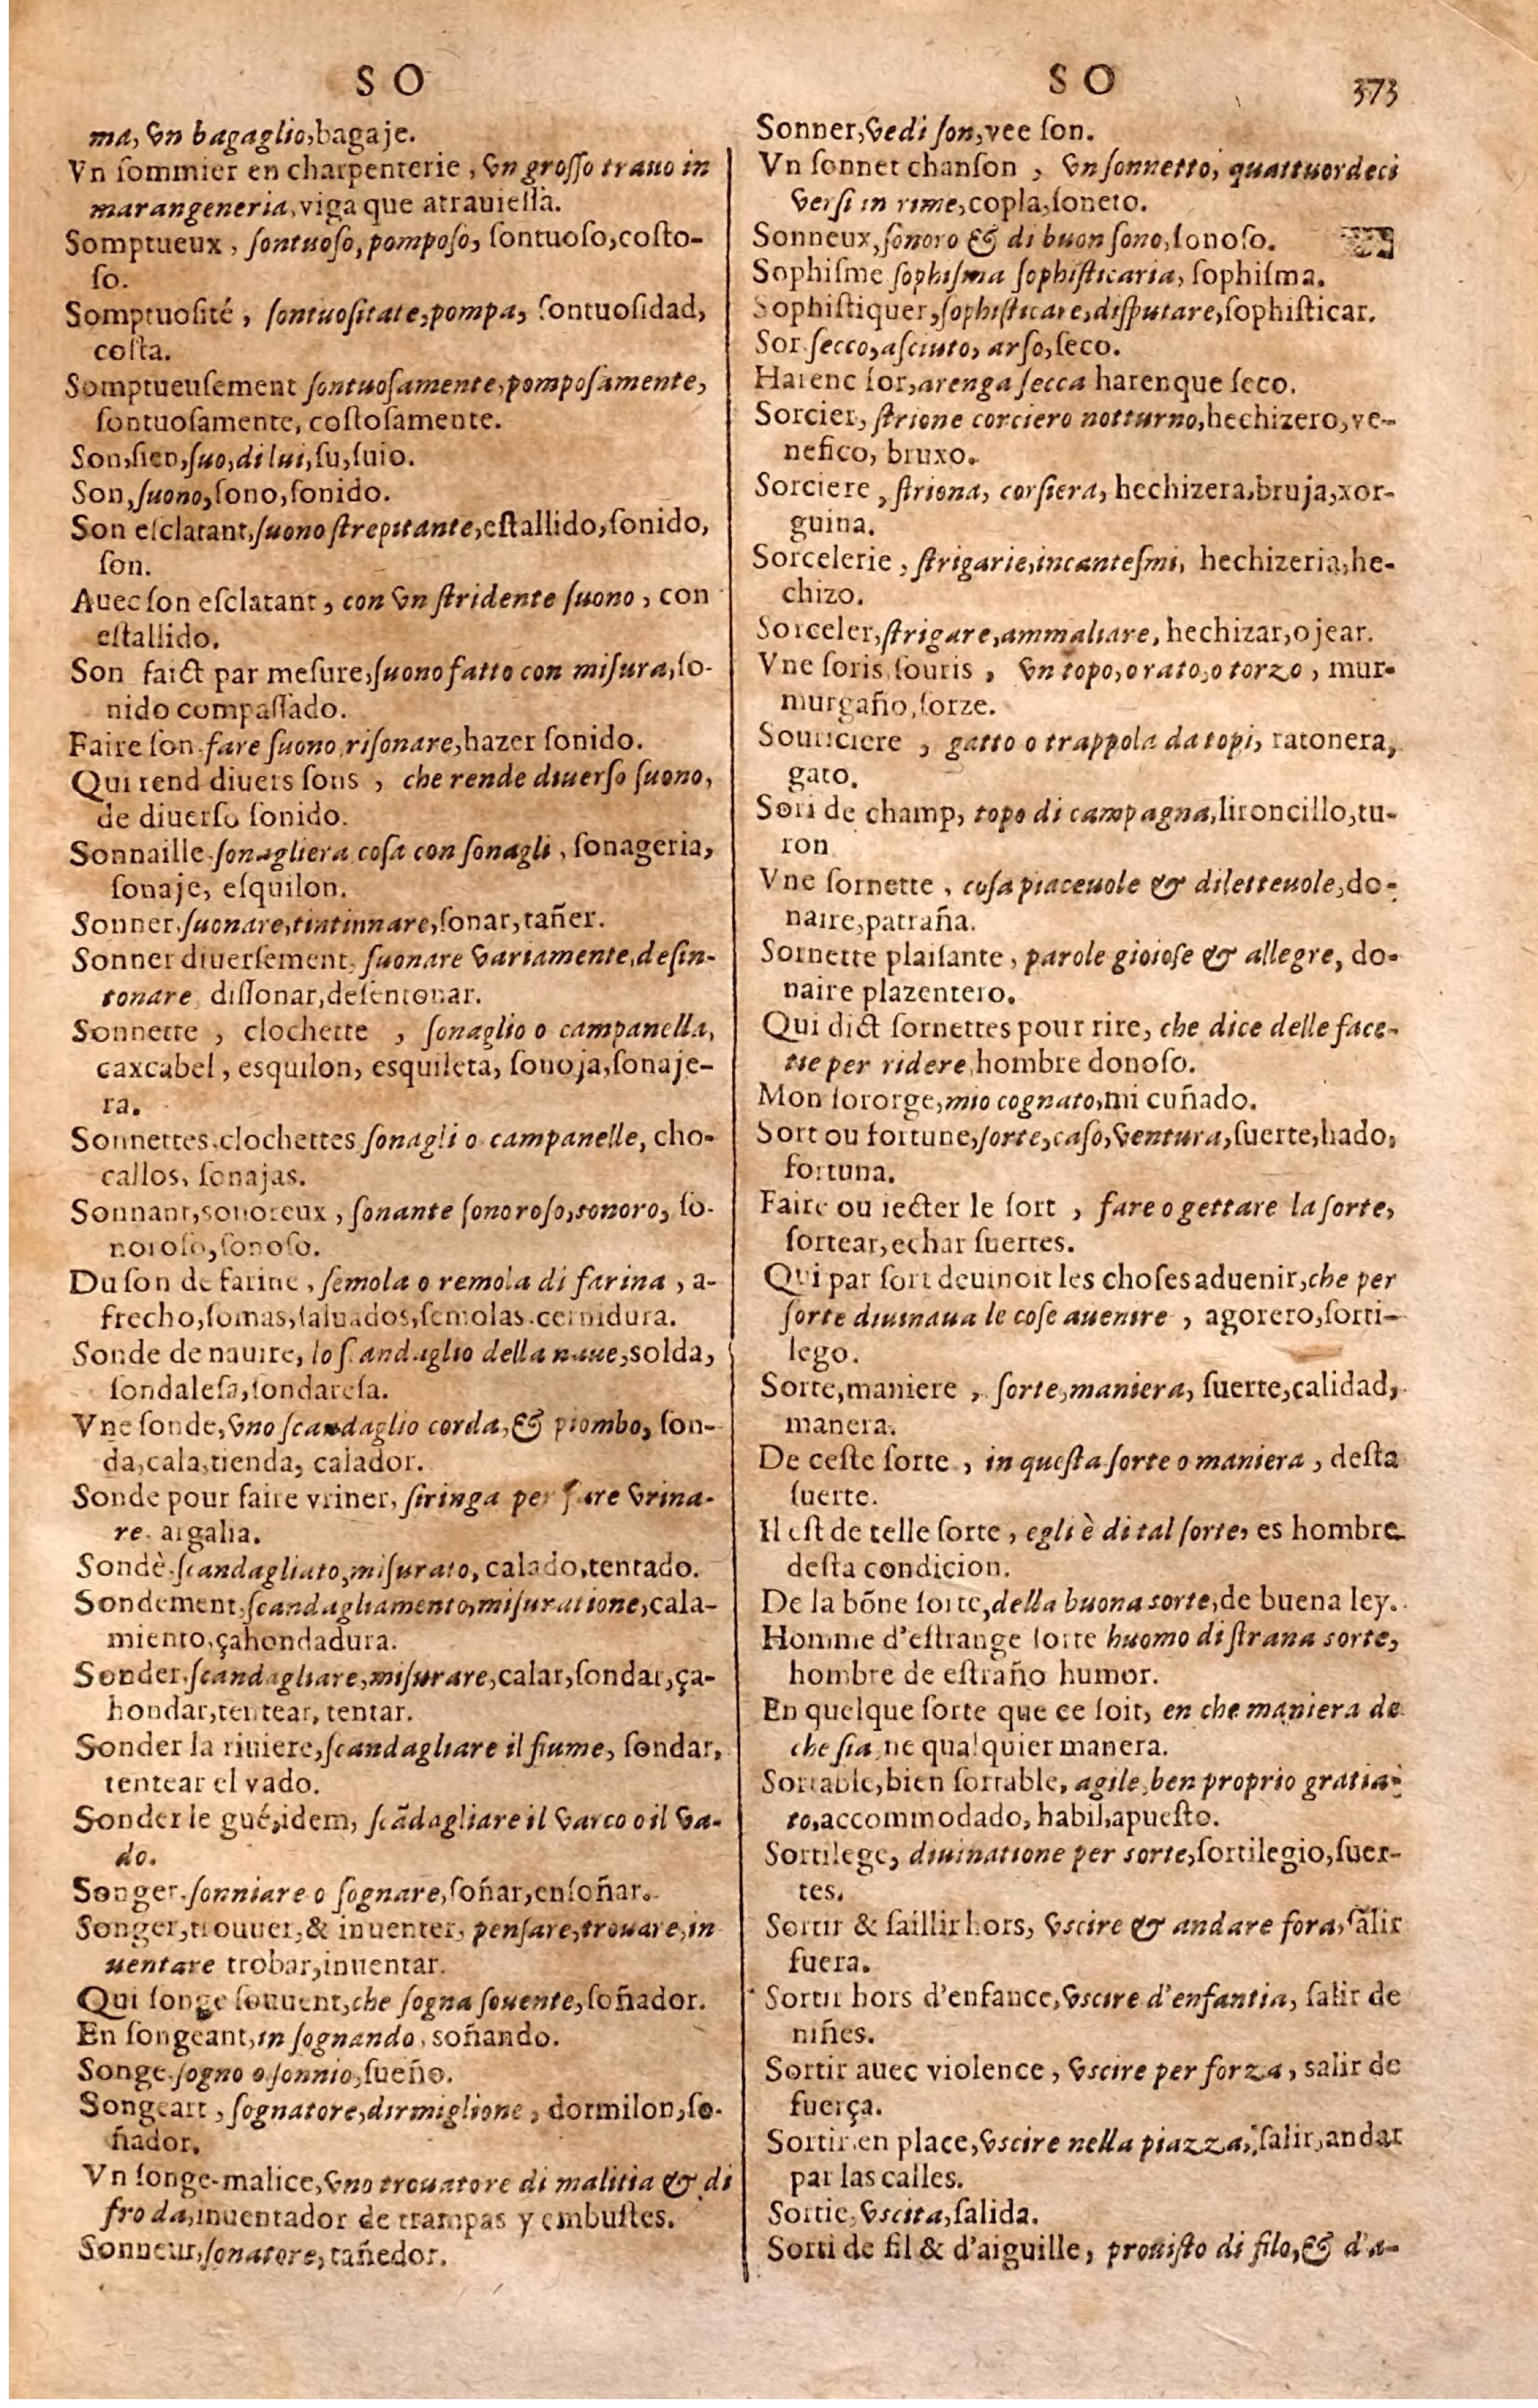 S O
ma, vn bagaglio, bagaje.
Vn ſommier en charpenterie, vn groſſo trauo in
marangeneria, viga que atrauieſſa.
Somptueux, ſontuoſo, pompoſo, ſontuoſo, coſto-
ſo.
Somptuoſité, ſontuoſitate, pompa, ſontuoſidad,
coſta.
Somptueuſement ſontuoſamente, pompoſamente,
ſontuoſamente, coſtoſamente.
Son, ſien, ſuo, di lui, ſu, ſuio.
Son, ſuono, ſono, ſonido.
Son eſclatant, ſuono ſtrepitante, eſtallido, ſonido,
ſon.
Auec ſon eſclatant, con vn ſtridente ſuono, con
eſtallido.
Son faict par meſure, ſuono fatto con miſura, ſo-
nido compaſſado.
Faire ſon. fare ſuono, riſonare, hazer ſonido.
Qui rend diuers ſons, che rende diuerſo ſuono,
de diuerſo ſonido.
Sonnaille. ſonagliera coſa con ſonagli, ſonageria,
ſonaje, eſquilon.
Sonner. ſuonare, tintinnare, ſonar, tañer.
Sonner diuerſement, ſuonare variamente, deſin-
tonare, diſſonar, deſentonar.
Sonnette, clochette, ſonaglio o campanella,
caxcabel, esquilon, esquileta, ſonoja, ſonaje-
ra.
Sonnettes. clochettes ſonagli o campanelle, cho-
callos, ſonajas.
Sonnant, sonoreux, ſonante ſonoroſo, sonoro, ſo-
noroſo, ſonoſo.
Du ſon de farine, ſemola o remola di farina, a-
frecho, ſomas, ſaluados, ſemolas. cernidura.
Sonde de nauire, lo ſcandaglio della naue, solda,
ſondaleſa, ſondareſa.
Vne ſonde, vno ſcandaglio corda, & piombo, ſon-
da, cala, tienda, calador.
Sonde pour faire vriner, ſiringa per fare vrina-
re. algalia.
Sondè. ſcandagliato, miſurato, calado, tentado.
Sondement, ſcandagliamento, miſuratione, cala-
miento, çahondadura.
Sonder. ſcandagliare, miſurare, calar, ſondar, ça-
hondar, tentear, tentar.
Sonder la riuiere, ſcandagliare il fiume, ſondar,
tentear el vado.
Sonder le gué, idem, ſcãdagliare il varco o il va-
do.
Songer. ſonniare o ſognare, ſoñar, enſoñar.
Songer, trouuer, & inuenter, penſare, trouare, in
uentare trobar, inuentar.
Qui ſonge ſouuent, che ſogna ſouente, ſoñador.
En ſongeant, in ſognando, soñando.
Songe. ſogno o ſonnio, ſueño.
Songeart, ſognatore, dirmiglione, dormilon, ſo-
ñador.
Vn ſonge-malice, vno trouatore di malitia & di
froda, inuentador de trampas y embuſtes.
Sonneur, ſonatore, tañedor.
S O
373
Sonner, vedi ſon, vee ſon.
Vn ſonnet chanſon, vn ſonnetto, quattuordeci
verſi in rime, copla, ſoneto.
Sonneux, ſonoro & di buon ſono, ſonoſo.
Sophiſme ſophiſma ſophiſticaria, ſophiſma.
Sophiſtiquer, ſophiſticare, diſputare, ſophiſticar.
Sor. ſecco, aſciuto, arſo, ſeco.
Harenc ſor, arenga ſecca harenque ſeco.
Sorcier, ſtrione corciero notturno, hechizero, ve-
nefico, bruxo.
Sorciere, ſtriona, corſiera, hechizera, bruja, xor-
guina.
Sorcelerie, ſtrigarie, incanteſmi, hechizeria, he-
chizo.
Sorceler, ſtrigare, ammaliare, hechizar, ojear.
Vne ſoris, ſouris, vn topo, o rato, o torzo, mur-
murgaño, ſorze.
Souriciere, gatto o trappola da topi, ratonera,
gato.
Sori de champ, topo di campagna, lironcillo, tu-
ron
Vne ſornette, coſa piaceuole & diletteuole, do-
naire, patraña.
Sornette plaiſante, parole gioioſe & allegre, do-
naire plazentero.
Qui dict ſornettes pour rire, che dice delle face-
tie per ridere, hombre donoſo.
Mon ſororge, mio cognato, mi cuñado.
Sort ou fortune, ſorte, caſo, ventura, ſuerte, hado,
fortuna.
Faire ou iecter le ſort, fare o gettare la ſorte,
ſortear, echar ſuertes.
Qui par ſort deuinoit les choſes aduenir, che per
ſorte diuinaua le coſe auenire, agorero, ſorti-
lego.
Sorte, maniere, ſorte, maniera, ſuerte, calidad,
manera.
De ceſte ſorte, in queſta ſorte o maniera, deſta
ſuerte.
Il eſt de telle ſorte, egli è di tal ſorte, es hombre
deſta condicion.
De la bõne ſorte, della buona sorte, de buena ley.
Homme d'eſtrange ſorte huomo di ſtrana sorte,
hombre de eſtraño humor.
En quelque ſorte que ce ſoit, en che maniera de
che ſia, ne qualquier manera.
Sortable, bien ſortable, agile, ben proprio gratia-
to, accommodado, habil, apueſto.
Sortilege, diuinatione per sorte, ſortilegio, ſuer-
tes.
Sortir & ſaillir hors, vſcire & andare fora, ſalir
fuera.
Sortir hors d'enfance, vſcire d'enfantia, ſalir de
niñes.
Sortir auec violence, vſcire per forza, salir de
fuerça.
Sortir en place, vſcire nella piazza, ſalir, andar
par las calles.
Sortie, vſcita, ſalida.
Sorti de fil & d'aiguille, prouiſto di filo, & d'a-